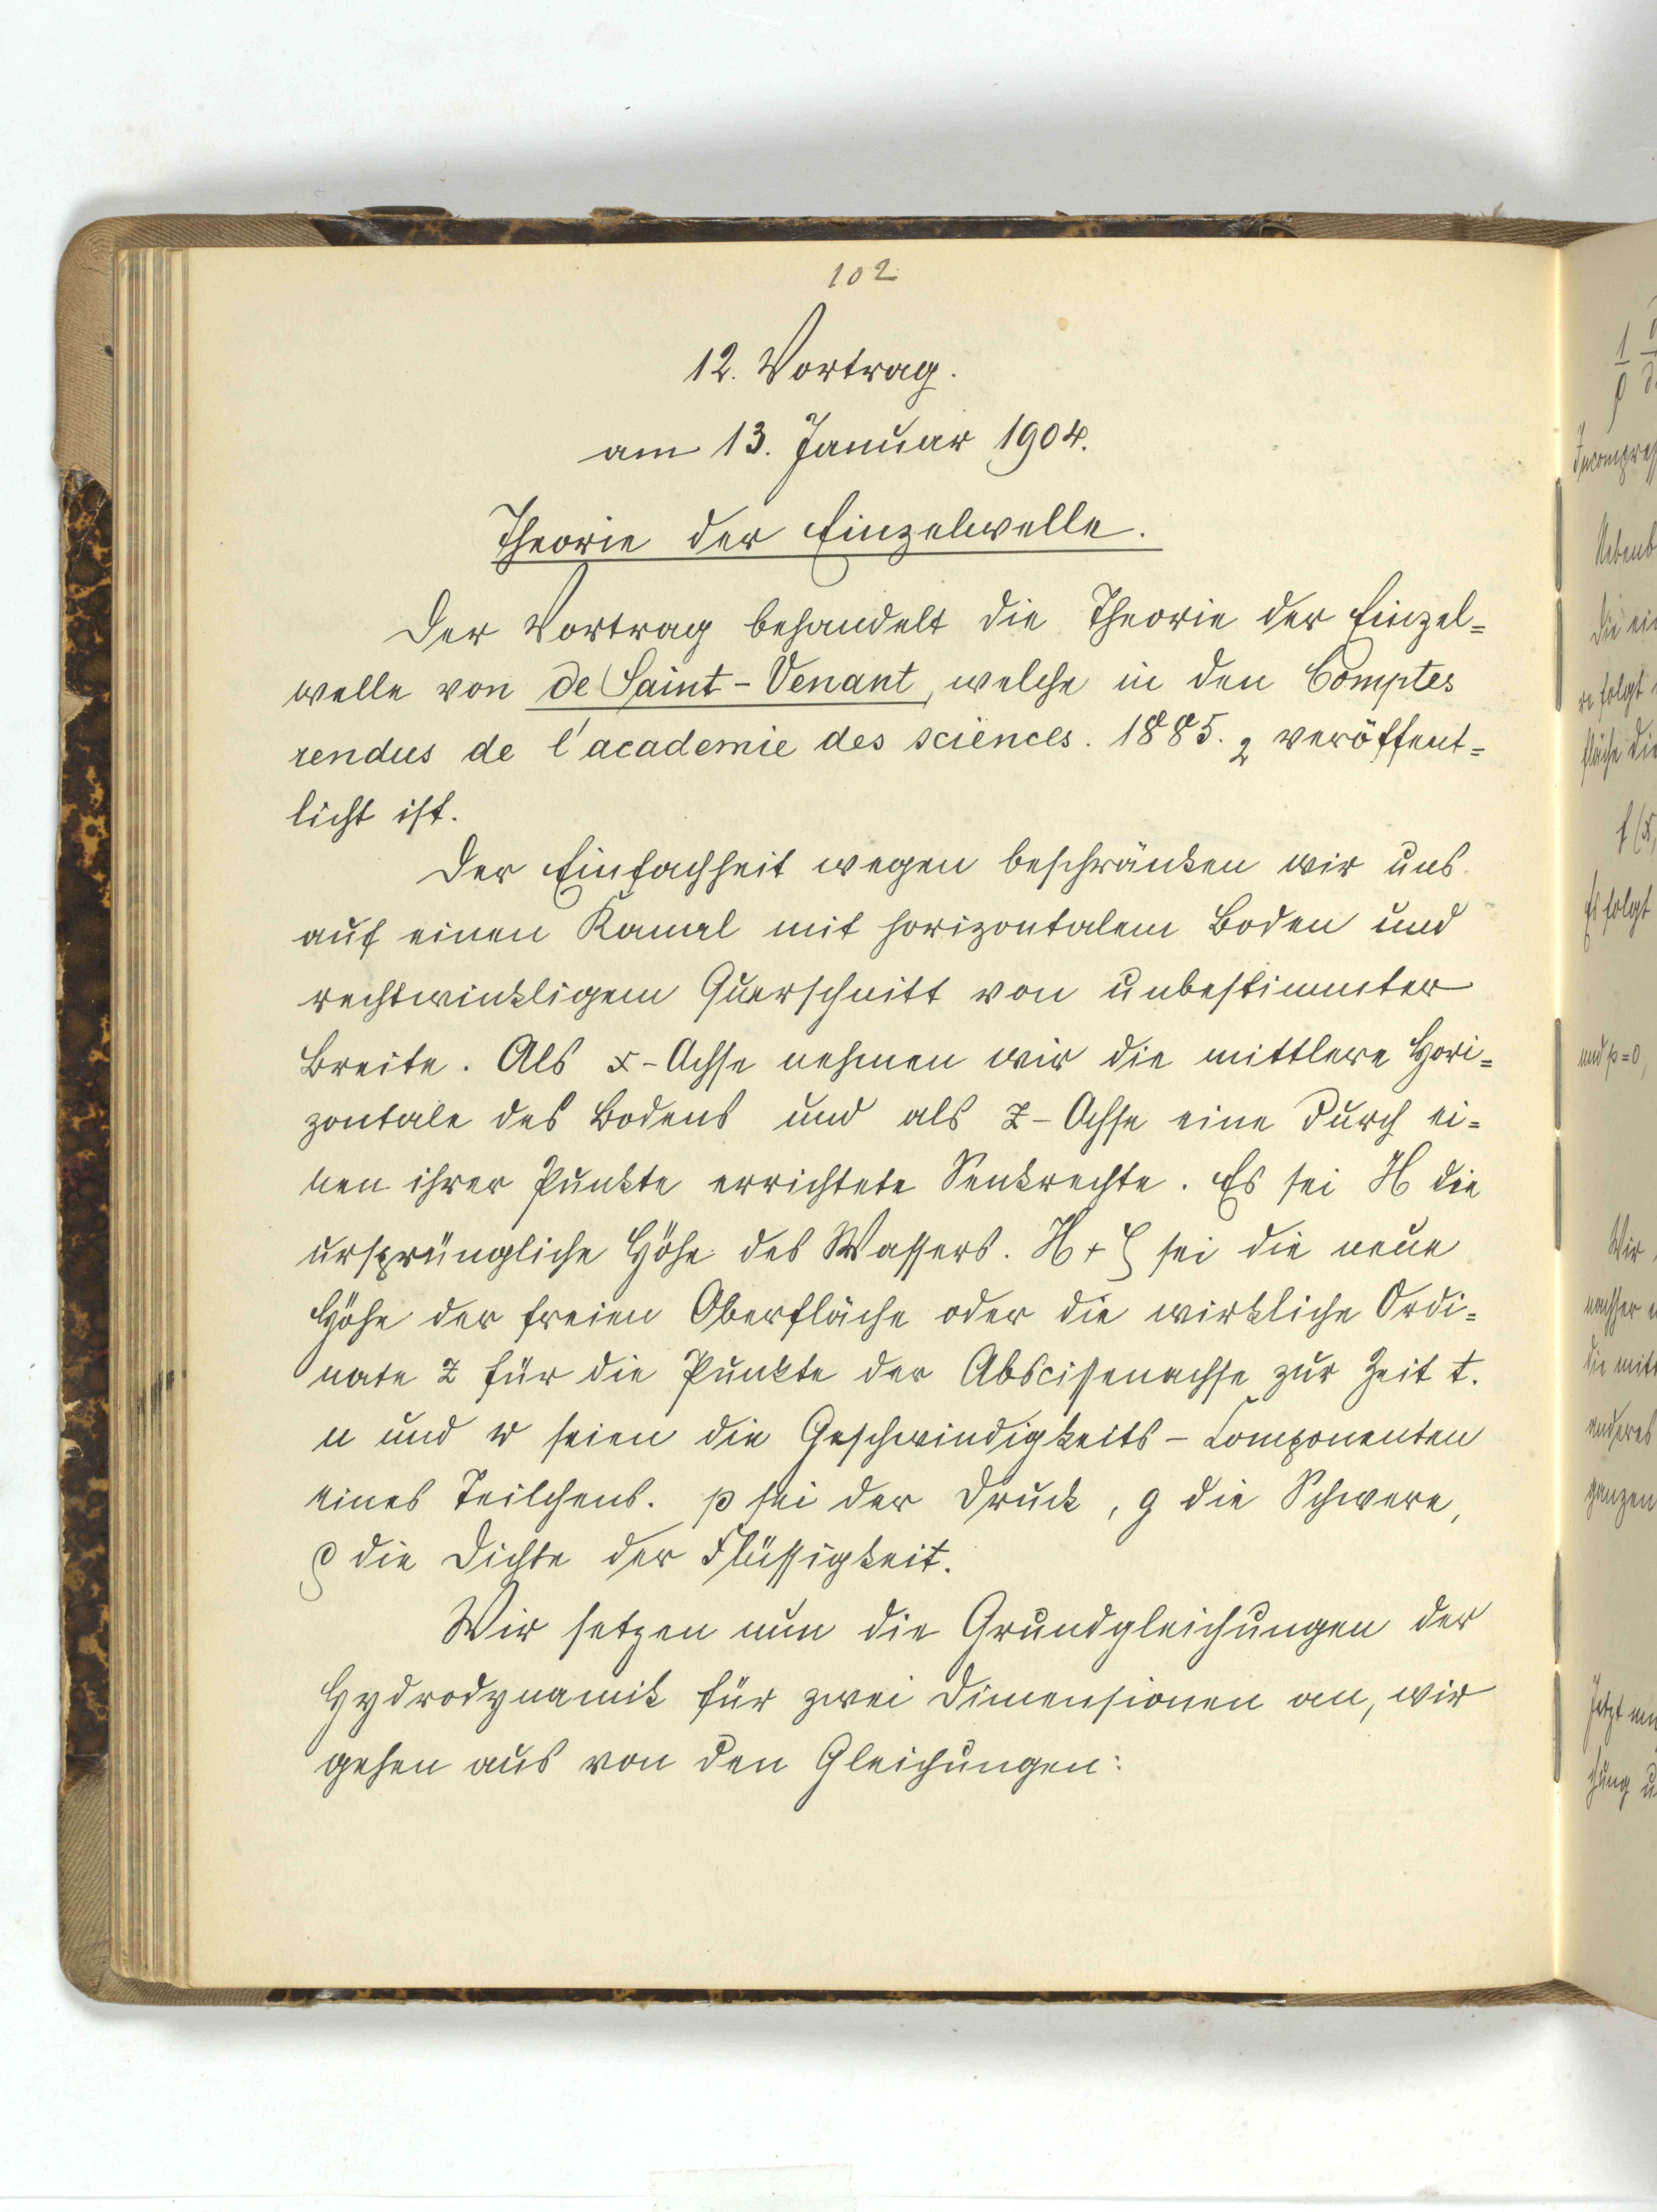 102
12. Vortrag.
am 13. Januar 1904.
Theorie der Einzelwelle.
Der Vortrag behandelt die Theorie der Einzel=
welle von de Saint-Venant, welche in den Comptes
rendus de l'academie des sciences. 1885. 2 veröffent=
licht ist.
Der Einfachheit wegen beschränken wir uns
auf einen Kanal mit horizontalem Boden und
rechtwinkligem Querschnitt von unbestimmter
Breite. Als x-Achse nehmen wir die mittlere Hori=
zontale des Bodens und als z-Achse eine durch ei=
nen ihrer Punkte errichtete Senkrechte. Es sei H die
ursprüngliche Höhe des Wassers. H+ζ sei die neue
Höhe der freien Oberfläche oder die wirkliche Ordi=
nate z für die Punkte der Abscissenachse zur Zeit t.
u und w seien die Geschwindigkeits-Componenten
eines Teilchens. p sei der Druck, g die Schwere,
ρ die Dichte der Flüssigkeit.
Wir setzen nun die Grundgleichungen der
Hydrodynamik für zwei Dimensionen an, wir
gehen aus von den Gleichungen:
die
folgt
fläche die
Es folgt
und p=0,
Wir
nachher
anderes
ganzen
Jetzt